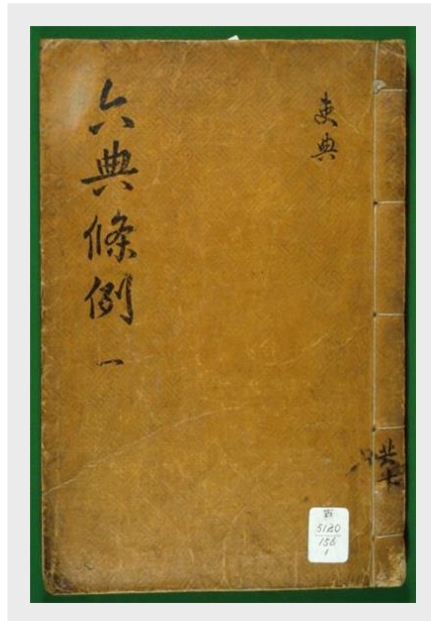 六典條例 一
吏典
共十
古
5120
156
1